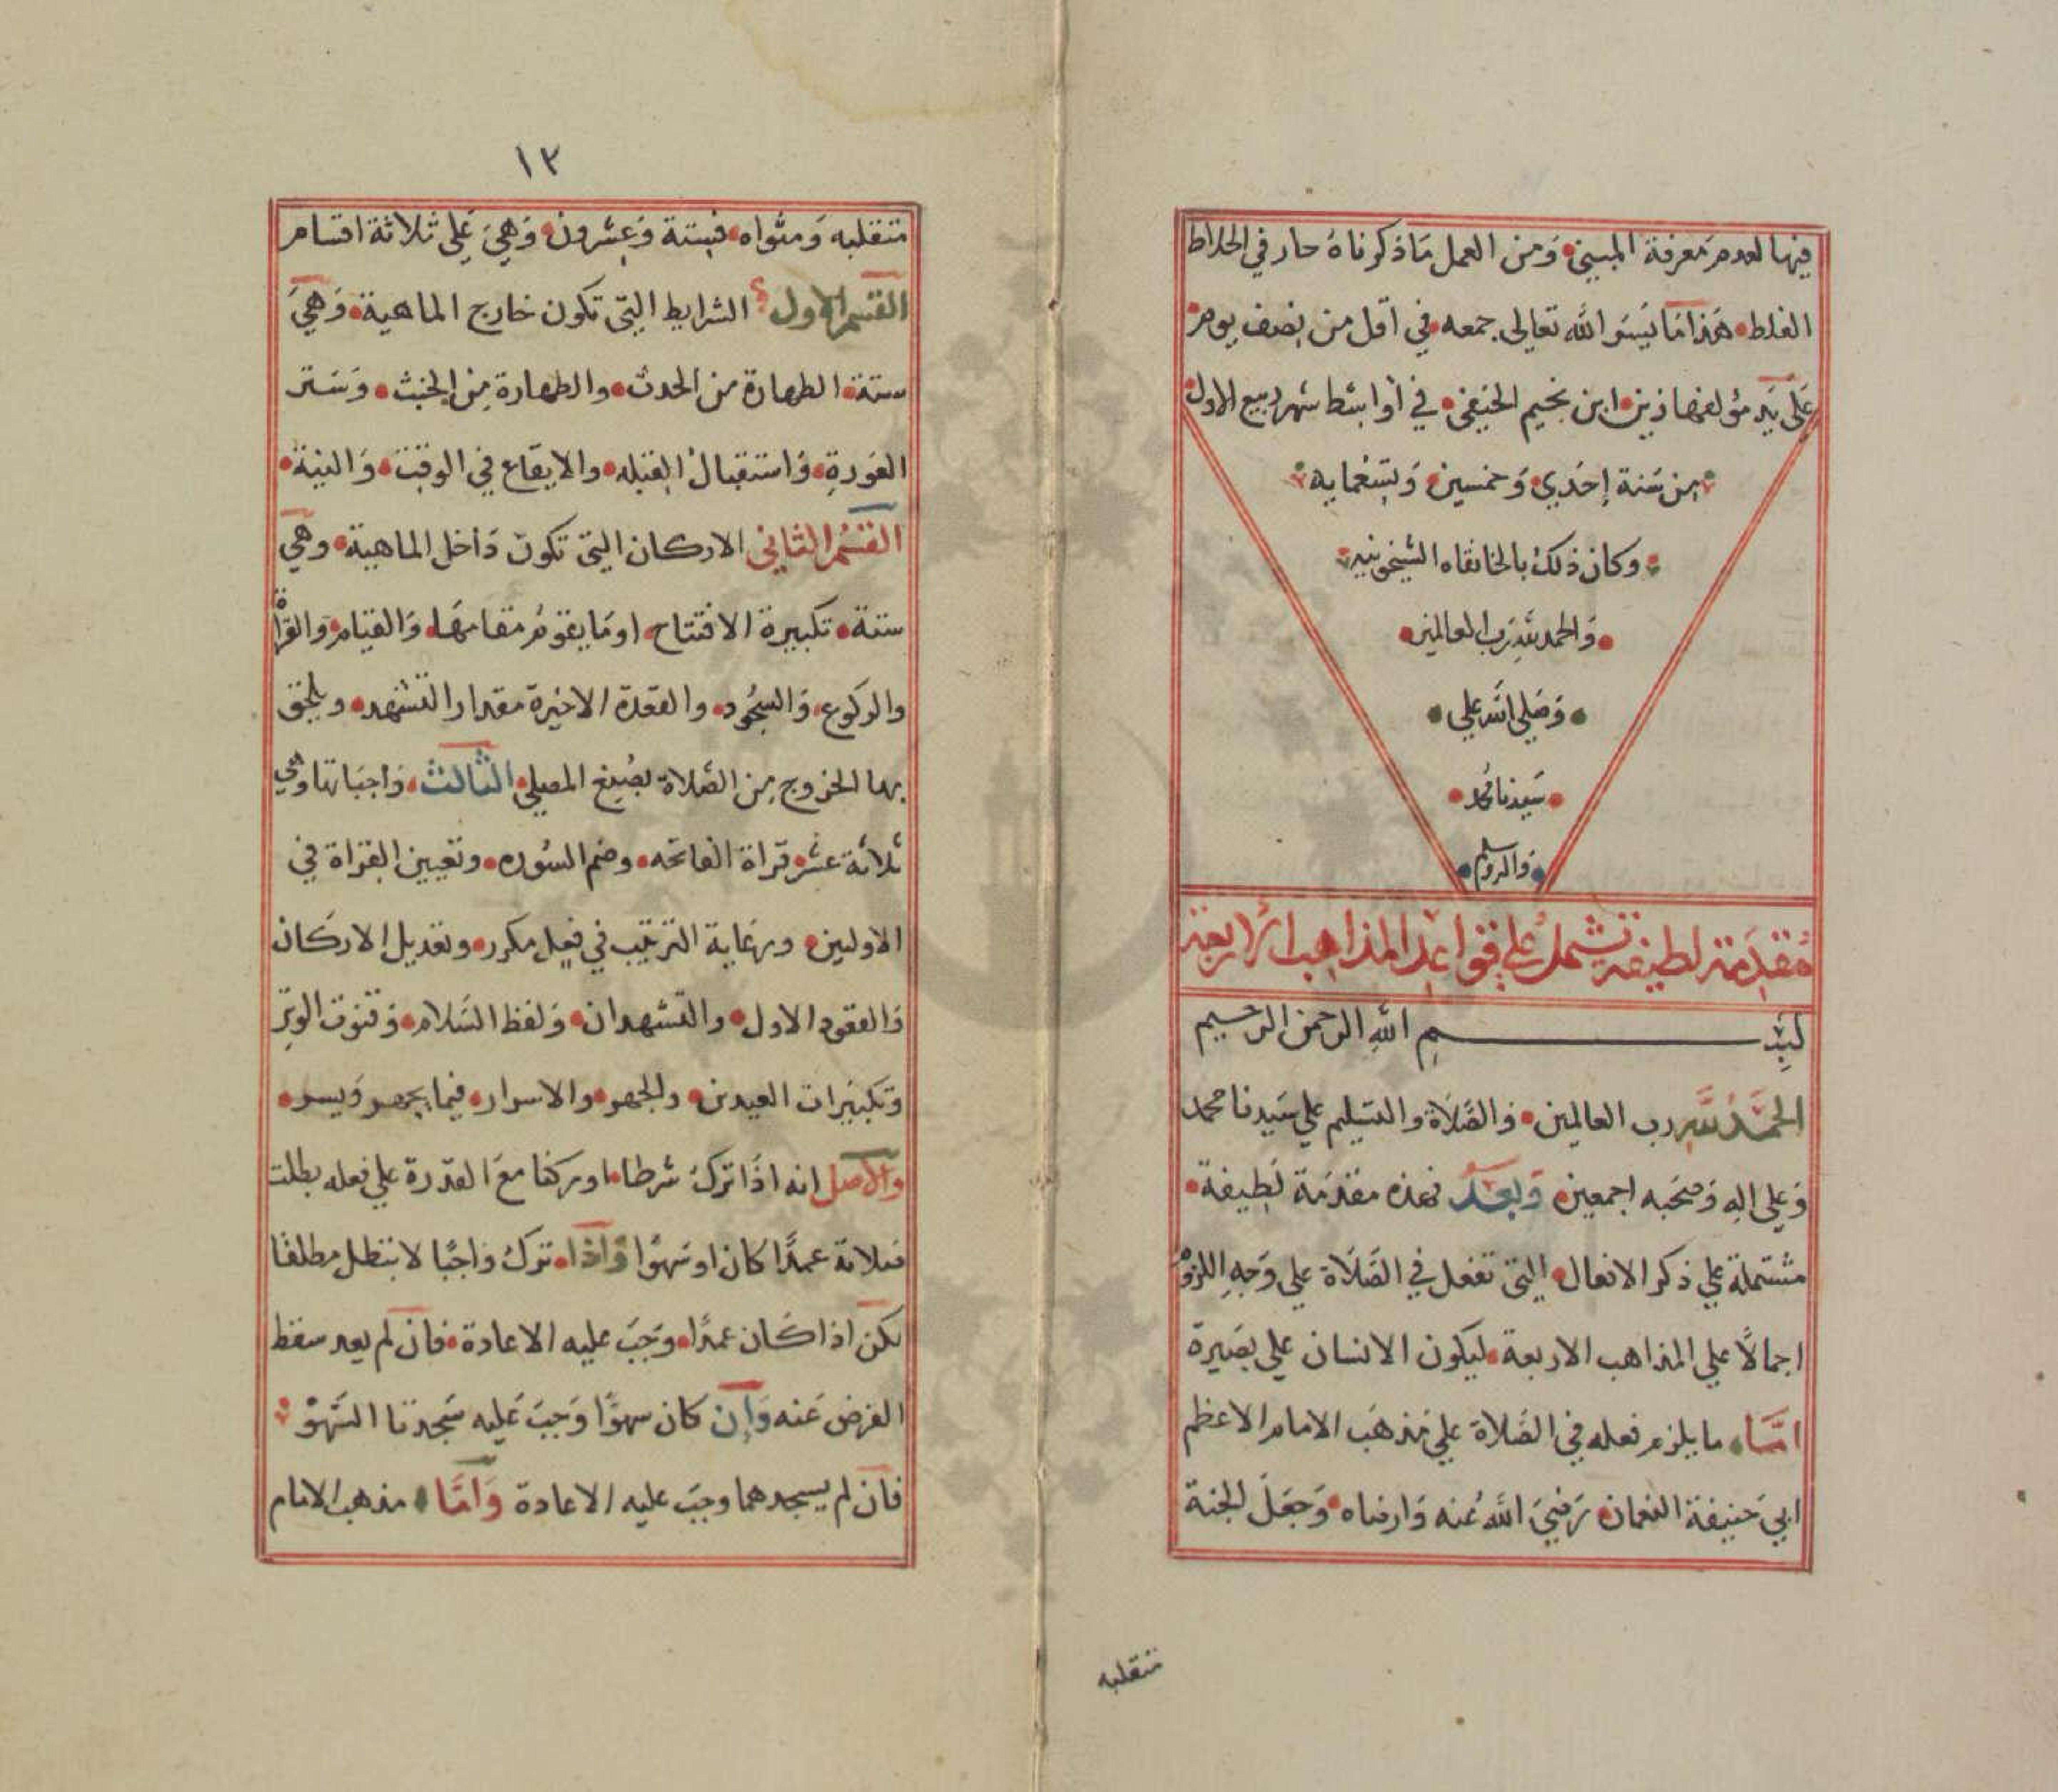 فيها لعدم معرفة المبيني ومن العمل ما ذكرناه حار في الخلاط
الغلط هذا ما يسر الله تعالى جمعه في اقل من نصف يوم
على يد مؤلفها زين ابن نجيم الحنفي في أواسط شهر ربيع الاول
من سنة إحدي وخمسين وتسعمايه
وكان ذلك بالخانقاه الشيخونيه
والحمد لله رب العالمين
وصلى الله علي
سيدنا محمد
واله وسلم
مقدمة لطيفة تشمل علي قواعد المذاهب الاربعة
بسم الله الرحمن الرحيم
الحمد لله رب العالمين والصلاة والتسليم علي سيدنا محمد
وعلي اله وصحبه اجمعين وبعد فهذه مقدمة لطيفة
مشتملة علي ذكر الافعال التي تفعل في الصلاة علي وجه اللزوم
اجمالا علي المذاهب الاربعة ليكون الانسان علي بصيرة
امّا ما يلزم فعله في الصلاة علي مذهب الامام الاعظم
ابي حنيفة النعمان رضي الله عنه وارضاه وجعل الجنة
منقلبه
١٣
منقلبه ومثواه فستة وعشرون وهي على ثلاثة اقسام
القسم الاول الشرايط التي تكون خارج الماهية وهي
ستة الطهارة من الحدث والطهارة من الخبث وستر
العورة واستقبال القبله والايقاع في الوقت والنية
القسم الثاني الاركان التي تكون داخل الماهية وهي
ستة تكبيرة الافتتاح او ما يقوم مقامها والقيام والقراة
والركوع والسجود والقعدة الاخيرة مقدار التشهد ويلحق
بها الخروج من الصلاة بصنع المصلي الثالث واجباتها وهي
ثلاثة عشر قراة الفاتحه وضم السوره وتعيين القراة في
الاوليين ورعاية الترتيب في فعل مكرر وتعديل الاركان
والقعود الاول والتشهدان ولفظ السلام وقنوت الوتر
وتكبيرات العيدين والجهر والاسرار فيما يجهر ويسر
والاصل انه اذا ترك شرطا او ركنا مع القدرة علي فعله بطلت
صلاته عمدًا كان او سهوًا واذا ترك واجبًا لا تبطل مطلقًا
لكن اذا كان عمدًا وجب عليه الاعادة فان لم يعد سقط
الفرض عنه وإن كان سهوًا وجب عليه سجدتا السهو
فان لم يسجدهما وجب عليه الاعادة وامّا مذهب الامام